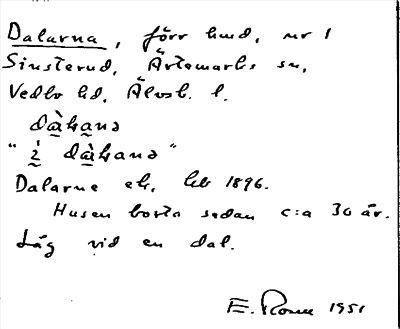 Dalarna, förr hmd, nr 1
Sinsterud, Ärtemarks sn,
Vedbo hd, Älvsb. l.
dàƚana
"i dàƚana"
Dalarne ek, hlb 1896.
Husen borta sedan c:a 30 år.
Låg vid en dal.
E. 1951